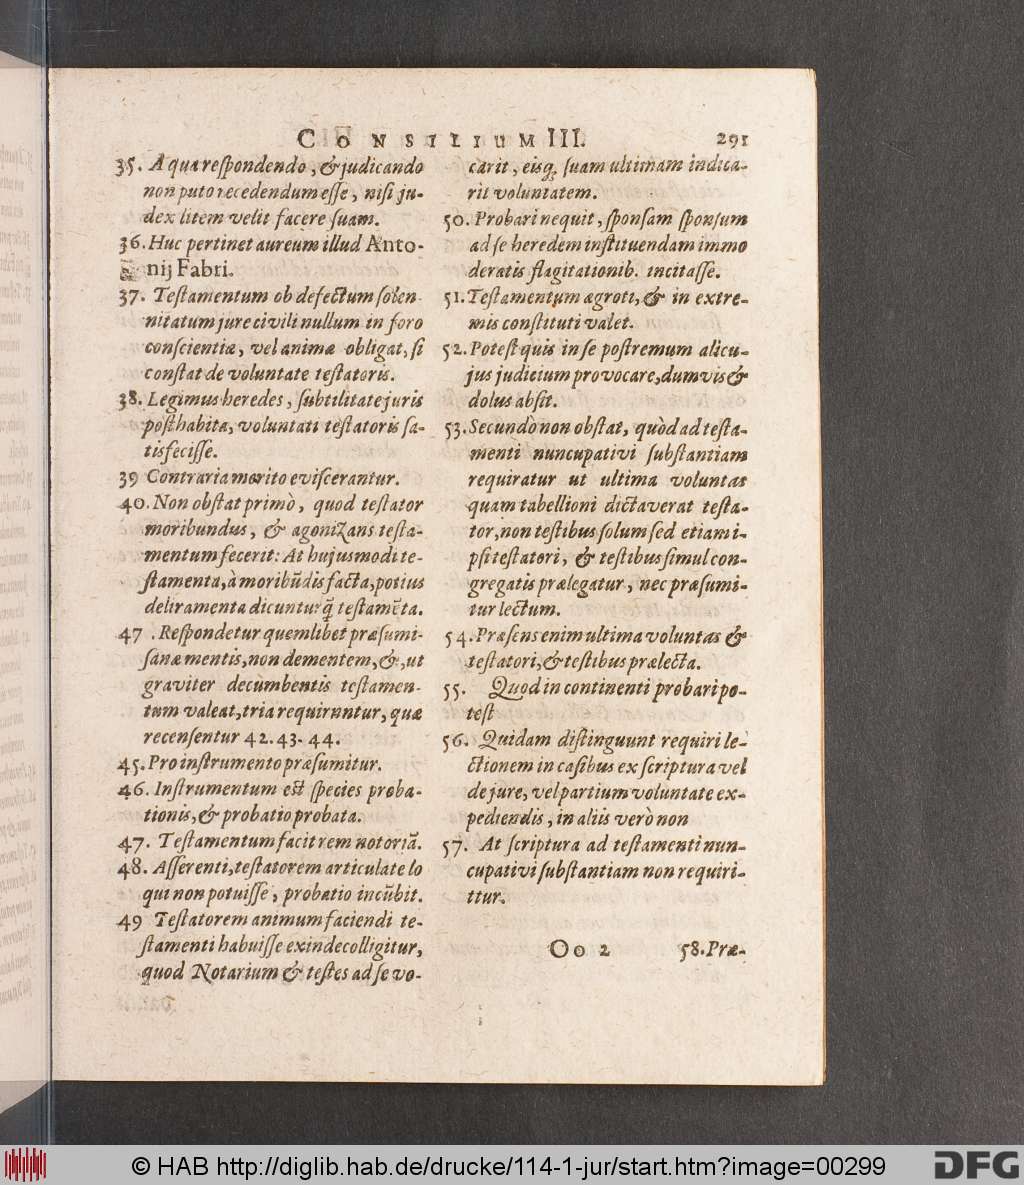 CONSILIUM III. 291
35. A qua reſpondendo, & judicando
non puto recedendum eſſe, niſi ju-
dex litem velit facere ſuam.
36. Huc pertinet aureum illud Anto-
nij Fabri.
37. Teſtamentum ob defectum ſolen-
nitatum jure civili nullum in foro
conſcientiæ, vel animæ obligat, ſi
conſtat de voluntate teſtatoris.
38. Legimus heredes, ſubtilitate juris
poſthabita, voluntati teſtatoris ſa-
tisfeciſſe.
39 Contraria merito eviſcerantur.
40. Non obſtat primò, quod teſtator
moribundus, & agonizans teſta-
mentum fecerit: At hujusmodi te-
ſtamenta, à moribūdis facta, potius
deliramenta dicuntur q̃ teſtamēta.
47 . Reſpondetur quemlibet præſumi-
ſanæ mentis, non dementem, &, ut
graviter decumbentis teſtamen-
tum valeat, tria requiruntur, quæ
recenſentur 42. 43. 44.
45. Pro inſtrumento præſumitur.
46. Inſtrumentum eſt ſpecies proba-
tionis, & probatio probata.
47. Teſtamentum facit rem notoriā.
48. Aſſerenti, teſtatorem articulate lo
qui non potuiſſe, probatio incūbit.
49 Teſtatorem animum faciendi te-
ſtamenti habuiſſe exinde colligitur,
quod Notarium & teſtes ad ſe vo-
carit, eisq; ſuam ultimam indica-
rit voluntatem.
50. Probari nequit, ſponſam ſponſum
ad ſe heredem inſtituendam immo
deratis flagitationib. incitaſſe.
51. Teſtamentum ægroti, & in extre-
mis conſtituti valet.
52. Poteſt quis in ſe poſtremum alicu-
jus judicium provocare, dum vis &
dolus abſit.
53. Secundò non obſtat, quòd ad teſta-
menti nuncupativi ſubſtantiam
requiratur ut ultima voluntas
quam tabellioni dictaverat teſta-
tor, non teſtibus ſolum ſed etiam i-
pſi teſtatori, & teſtibus ſimul con-
gregatis prælegatur, nec præſumi-
tur lectum.
54. Præſens enim ultima voluntas &
teſtatori, & teſtibus prælecta.
55. Quod in continenti probari po-
teſt
56. Quidam diſtinguunt requiri le-
ctionem in caſibus ex ſcriptura vel
de jure, vel partium voluntate ex-
pediendis, in aliis verò non
57. At ſcriptura ad teſtamenti nun-
cupativi ſubſtantiam non requiri-
ttur.
Oo 2 58. Præ-
© HAB http://diglib.hab.de/drucke/114-1-jur/start.htm?image=00299
DFG